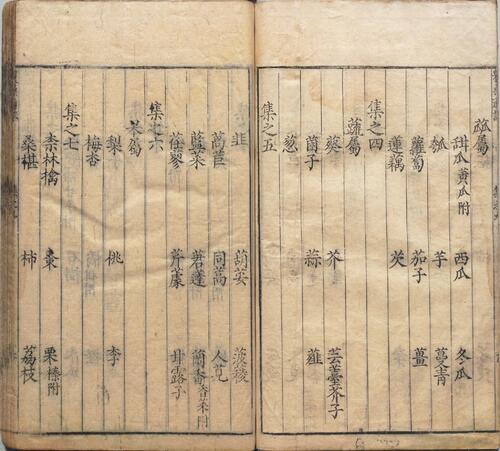 蓏屬
甜瓜黄瓜附 西瓜 冬瓜
瓠 芋 蔓菁
蘿蔔 茄子 薑
蓮藕 芡
集之四
蔬屬
葵 芥 芸薹芥子
菌子 蒜 薤
葱
集之五
韭 葫荽 菠薐
萵苣 同蒿 人莧
藍菜 莙薘 蘭香香菜附
荏蓼 芹䕮 甘露子
集之六
果屬
梨 桃 李
梅杏
集之七
柰林檎 棗 栗榛附
桑椹 柿 荔枝